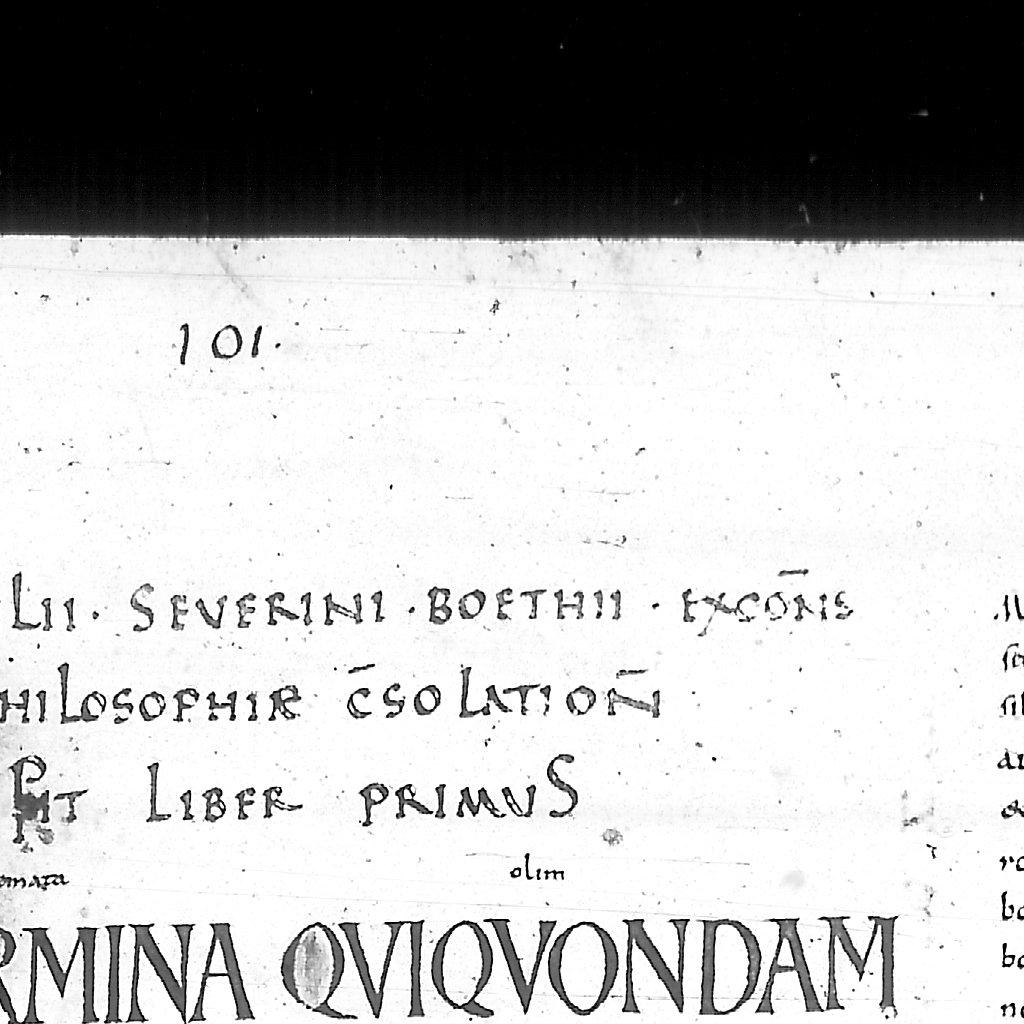 101.
LII · SEVERINI · BOETHII · EXCON̄S
HILOSOPHIE C̄SOLATION̄
PIT LIBER PRIMUS
omata olim
RMINA QVIQVONDAM